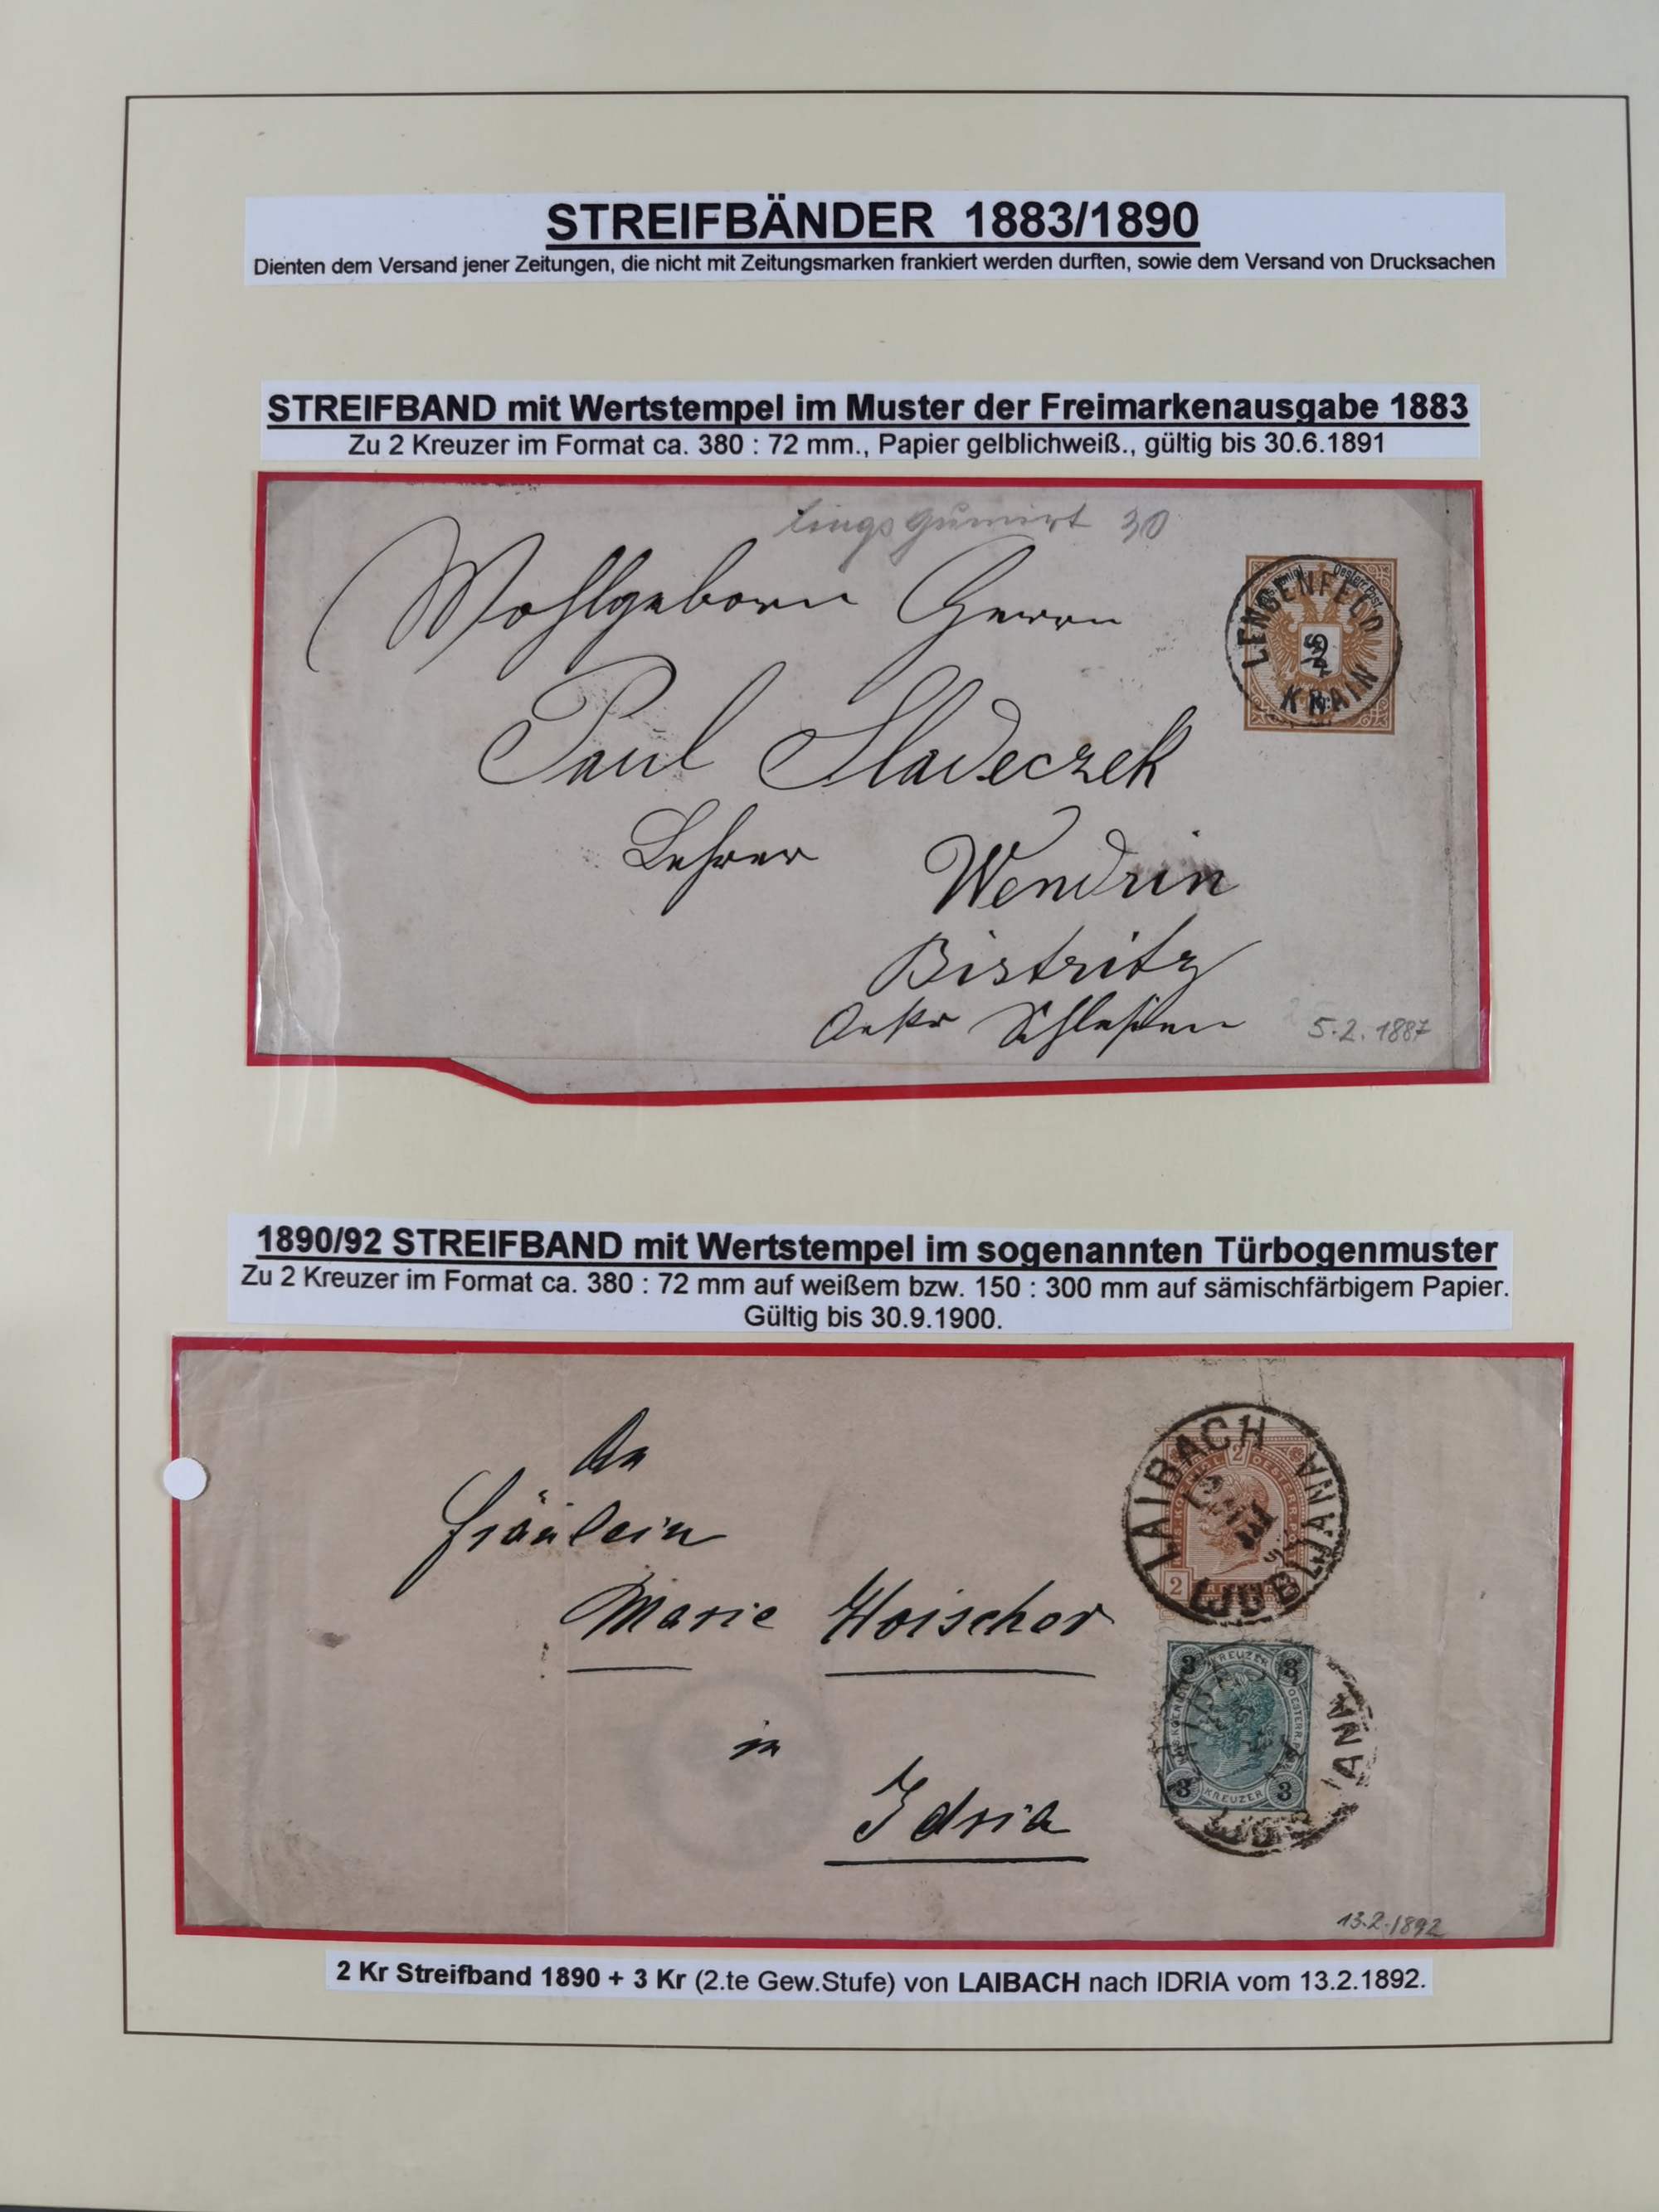 STREIFBÄNDER 1883/1890
Dienten dem Versand jener Zeitungen, die nicht mit Zeitungsmarken frankiert werden durften, sowie dem Versand von Drucksachen
STREIFBAND mit Wertstempel im Muster der Freimarkenausgabe 1883
Zu 2 Kreuzer im Format ca. 380 : 72 mm., Papier gelblichweiß., gültig bis 30.6.1891
30
Wohlgeborn Herrn
LENGENFELD
KRAIN
Paul Sladeczek
Lehrer
Wendrin
Bistritz
Schlesien
5.2.1887
1890/92 STREIFBAND mit Wertstempel im sogenannten Türbogenmuster
Zu 2 Kreuzer im Format ca. 380 : 72 mm auf weißem bzw. 150 : 300 mm auf sämischfärbigem Papier.
Gültig bis 30.9.1900.
An
Fräulein
Marie Woischer
in
Idria
LAIBACH
LJUBLJANA
2
2
3 KREUZER 3
3 KREUZER 3
13.2.1892
2 Kr Streifband 1890 + 3 Kr (2.te Gew.Stufe) von LAIBACH nach IDRIA vom 13.2.1892.